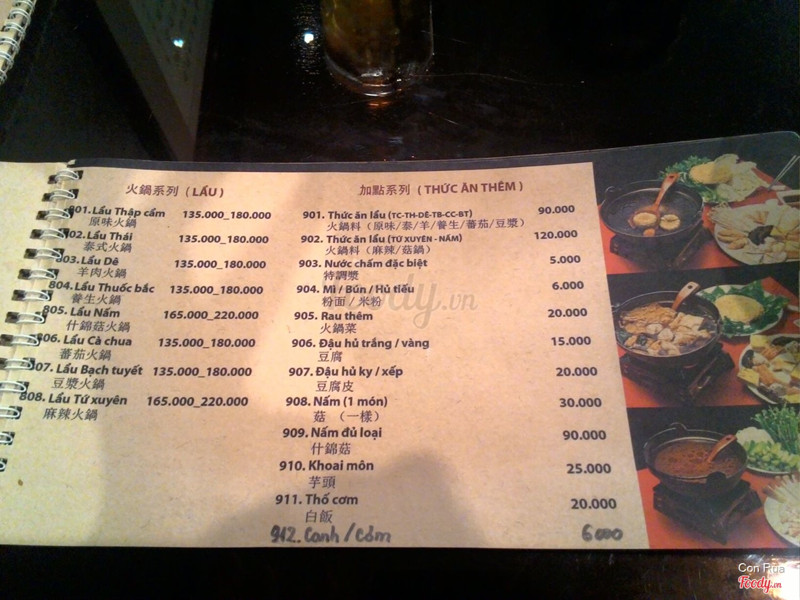 火鍋系列 ( LẨU )
801. Lẩu Thập cẩm 135.000_180.000
原味火鍋
802. Lẩu Thái 135.000_180.000
泰式火鍋
803. Lẩu Dê 135.000_180.000
羊肉火鍋
804. Lẩu Thuốc bắc 135.000_180.000
養生火鍋
805. Lẩu Nấm 165.000_220.000
什錦菇火鍋
806. Lẩu Cà chua 135.000_180.000
蕃茄火鍋
807. Lẩu Bạch tuyết 135.000_180.000
豆漿火鍋
808. Lẩu Tứ xuyên 165.000_220.000
麻辣火鍋
加點系列 ( THỨC ĂN THÊM )
901. Thức ăn lẩu (TC-TH-DÊ-TB-CC-BT) 90.000
火鍋料（原味/泰/羊/養生/蕃茄/豆漿）
902. Thức ăn lẩu (TỨ XUYÊN - NẤM) 120.000
火鍋料（麻辣/菇鍋）
903. Nước chấm đặc biệt 5.000
特調漿
904. Mì / Bún / Hủ tiếu 6.000
粉面 / 米粉
905. Rau thêm 20.000
火鍋菜
906. Đậu hủ trắng / vàng 15.000
豆腐
907. Đậu hủ ky / xếp 20.000
豆腐皮
908. Nấm (1 món) 30.000
菇 （一樣）
909. Nấm đủ loại 90.000
什錦菇
910. Khoai môn 25.000
芋頭
911. Thố cơm 20.000
白飯
912. Canh / Cơm 6000
Foody.vn
Con Rùa
Foody.vn